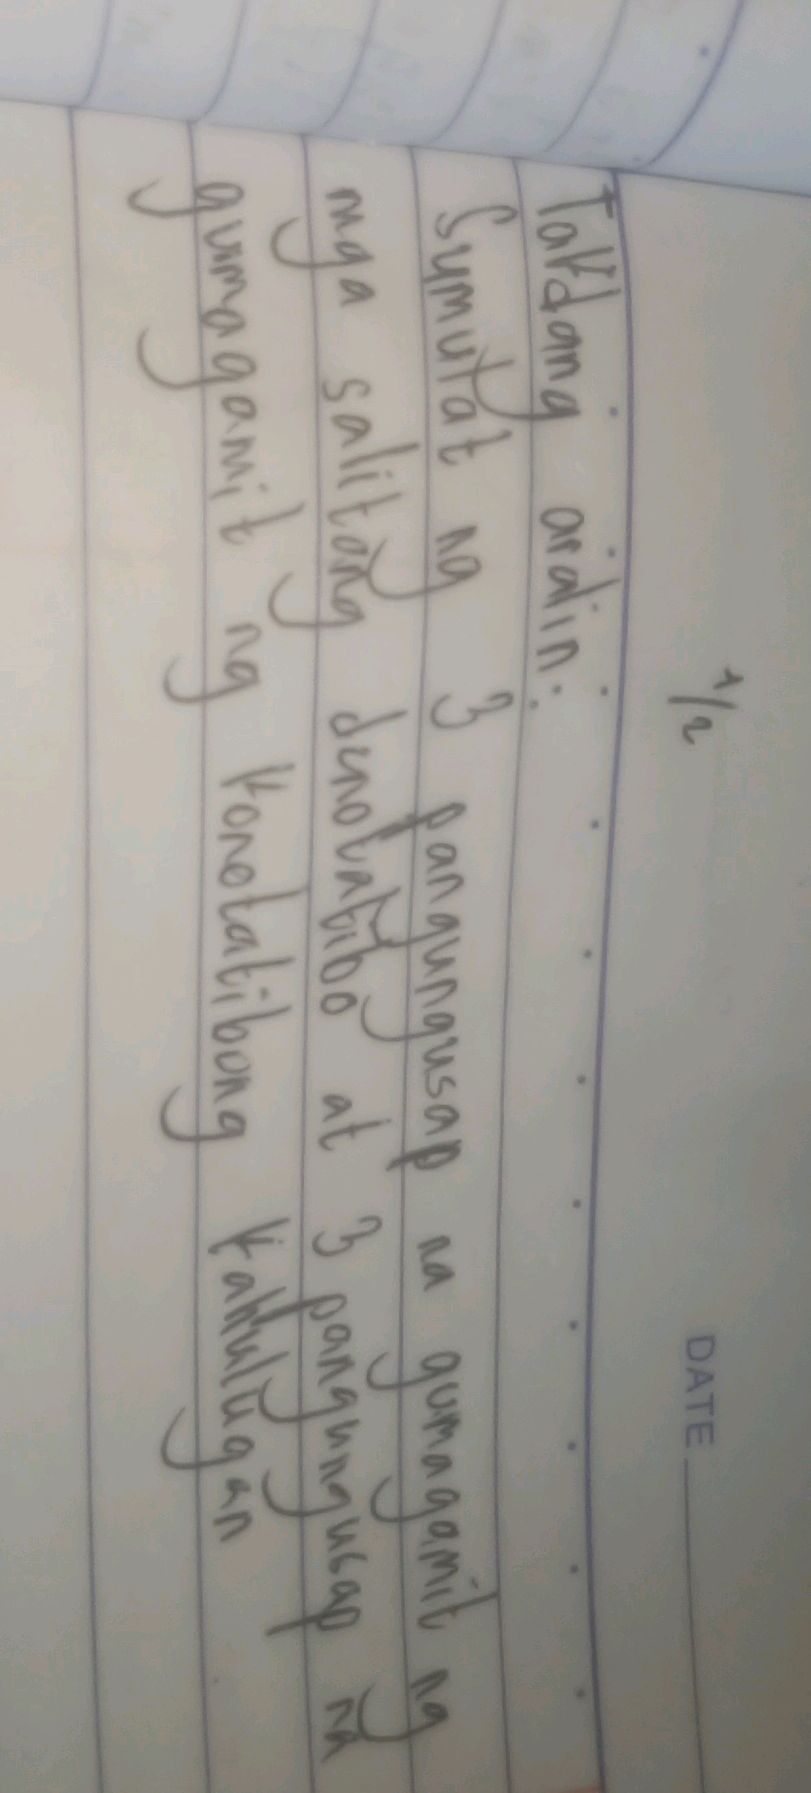 1/2
DATE
Takdang aralin:
Sumulat ng 3 pangungusap na gumagamit ng
mga salitang denotatibo at 3 pangungusap na
gumagamit ng konotatibong kahulugan